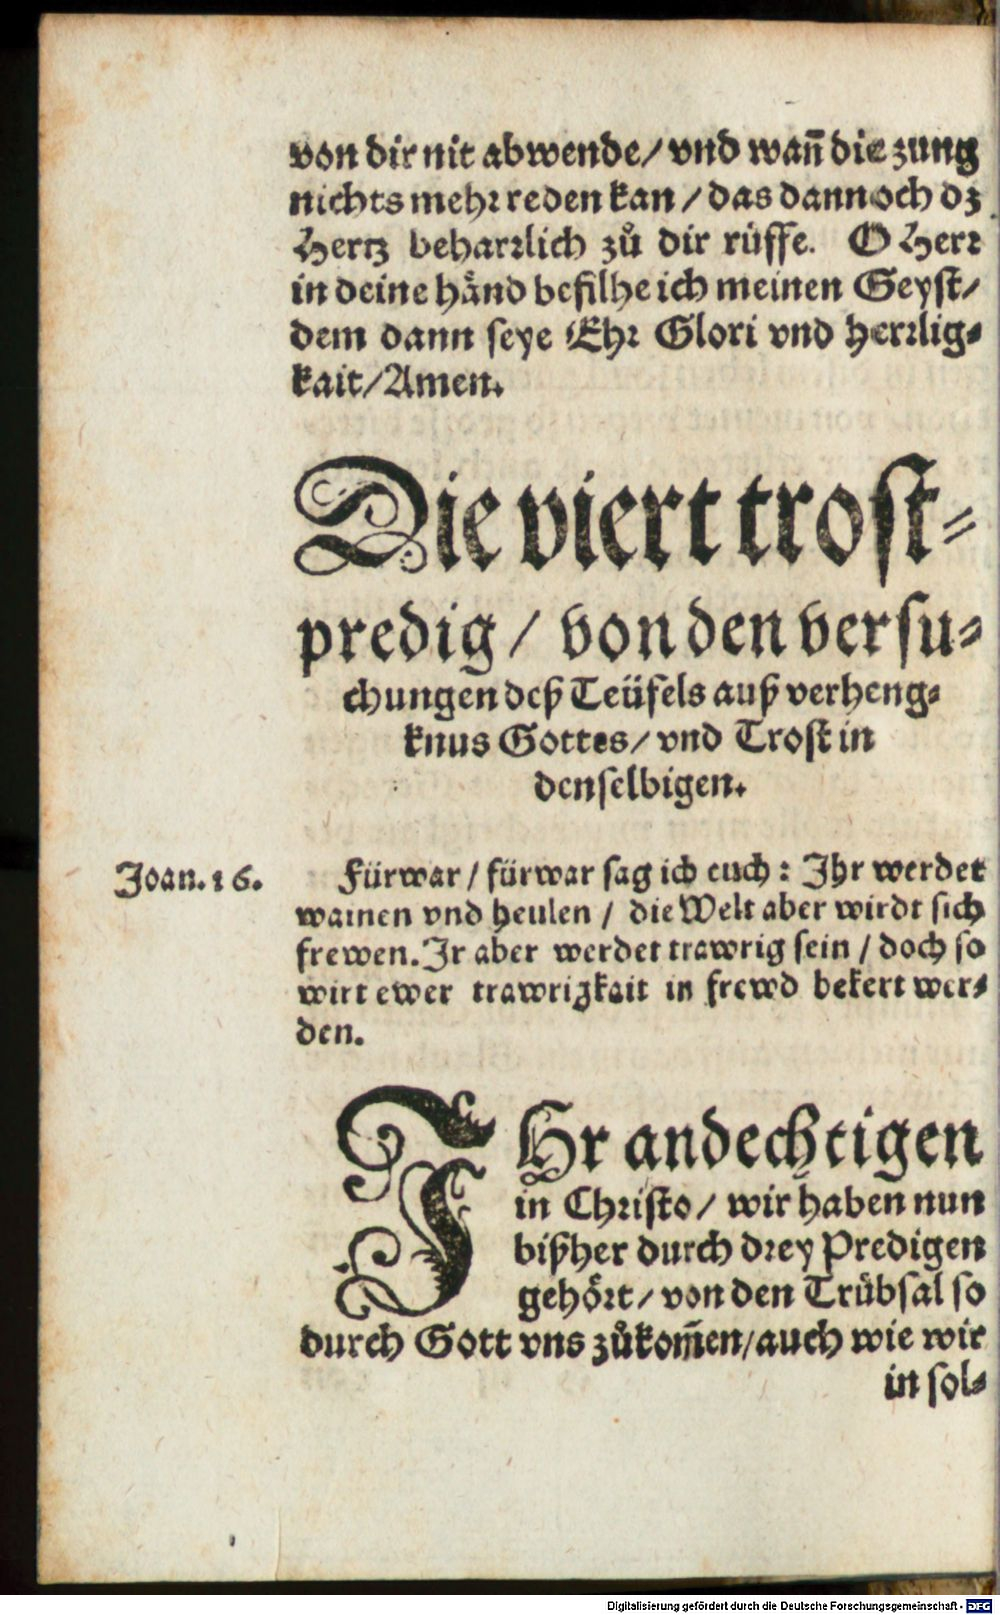 von dir nit abwende/ vnd wañ die zung
nichts mehr reden kan / das dannoch dz
Hertz beharrlich zů dir rüffe. O Herr
in deine hånd befilhe ich meinen Geyst/
dem dann seye Ehr Glori vnd herrlig-
kait/Amen.
Die viert trost-
predig / von den versu-
chungen deß Teüfels auß verheng-
knus Gottes/ vnd Trost in
denselbigen.
Joan. 16.
Fürwar / fürwar sag ich euch: Ihr werdet
wainen vnd heulen / die Welt aber wirdt sich
frewen. Ir aber werdet trawrig sein / doch so
wirt ewer trawrigkait in frewd bekert wer-
den.
IHr andechtigen
in Christo/ wir haben nun
bißher durch drey Predigen
gehört/ von den Trübsal so
durch Gott vns zůkom̃en/auch wie wir
in sol-
Digitalisierung gefördert durch die Deutsche Forschungsgemeinschaft - DFG